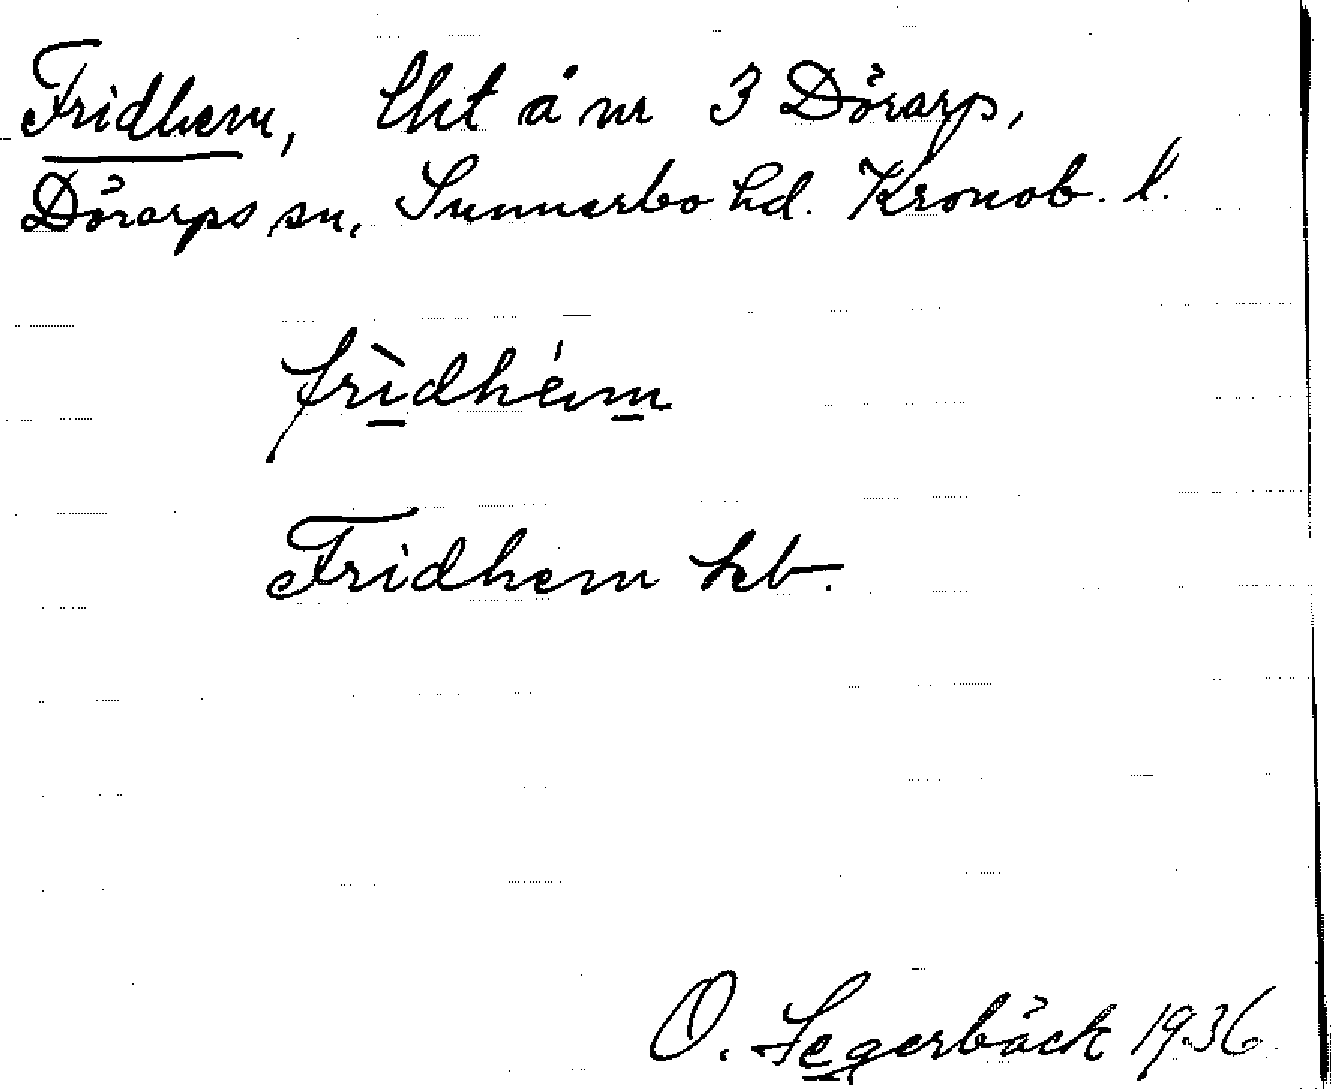 Fridhem, lht å nr 3 Dörarp,
Dörarps sn, Sunnerbo hd. Kronob. l.
frìdhém
Fridhem hb.
O. Segerbäck 1936